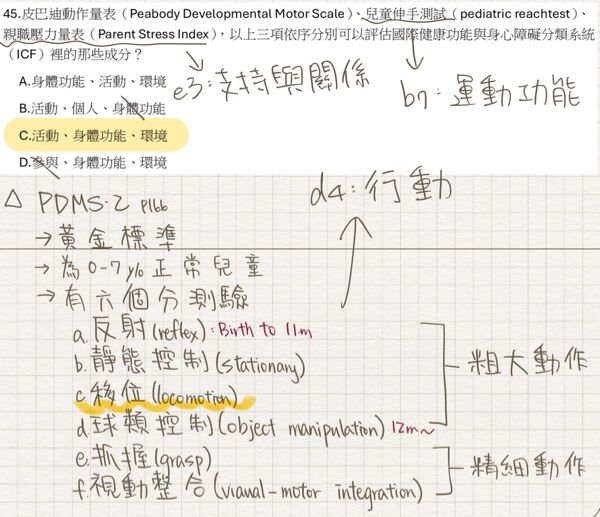 45.皮巴迪動作量表（Peabody Developmental Motor Scale）、兒童伸手測試（pediatric reachtest）、
親職壓力量表（Parent Stress Index），以上三項依序分別可以評估國際健康功能與身心障礙分類系統
（ICF）裡的那些成分？
A.身體功能、活動、環境
B.活動、個人、身體功能
C.活動、身體功能、環境
D.參與、身體功能、環境
e3:支持與關係
b7:運動功能
d4:行動
△ PDMS-2 P166
→黃金標準
→為0-7y/o正常兒童
→有六個分測驗
a.反射(reflex):Birth to 11m
b.靜態控制(stationary)
c.移位(locomotion)
d.球類控制(object manipulation) 12m~
粗大動作
e.抓握(grasp)
f.視動整合(viaual-motor integration)
精細動作